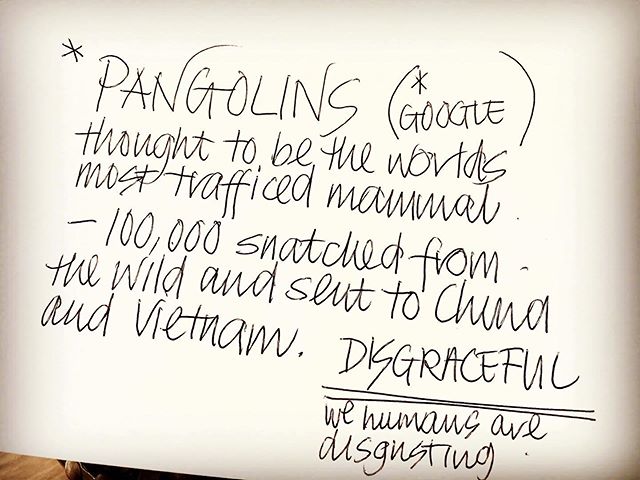 * PANGOLINS (* GOOGLE)
thought to be the worlds
most trafficed mammal.
- 100,000 snatched from.
the wild and sent to China
and Vietnam. DISGRACEFUL
we humans are
disgusting.